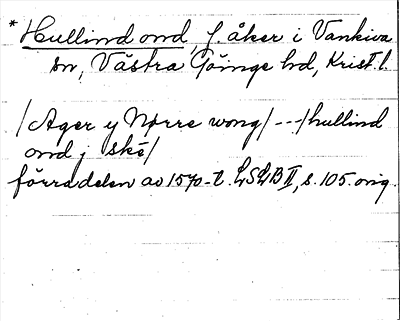 * Hullind ond, f. åker i Vankiva
sn, Västra Göinge hd, Krist. l.
/Ager y Nørre wong/ --- /hullind
ond j skè/
förra delen av 1570-t. LSLB II, s. 105. orig.